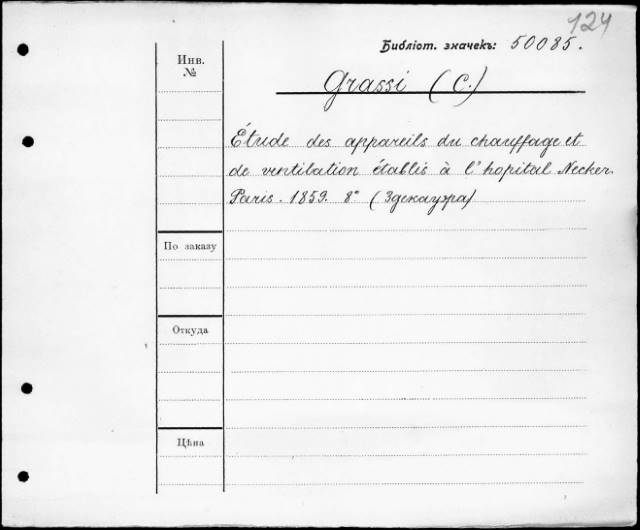 124
Библіот. значекъ: 50085.
Инв.
№
Grassi (C.)
Étude des appareils du chauffage et
de ventilation établis à l'hopital Necker.
Paris. 1859. 8° (Здекауэра)
По заказу
Откуда
Цѣна